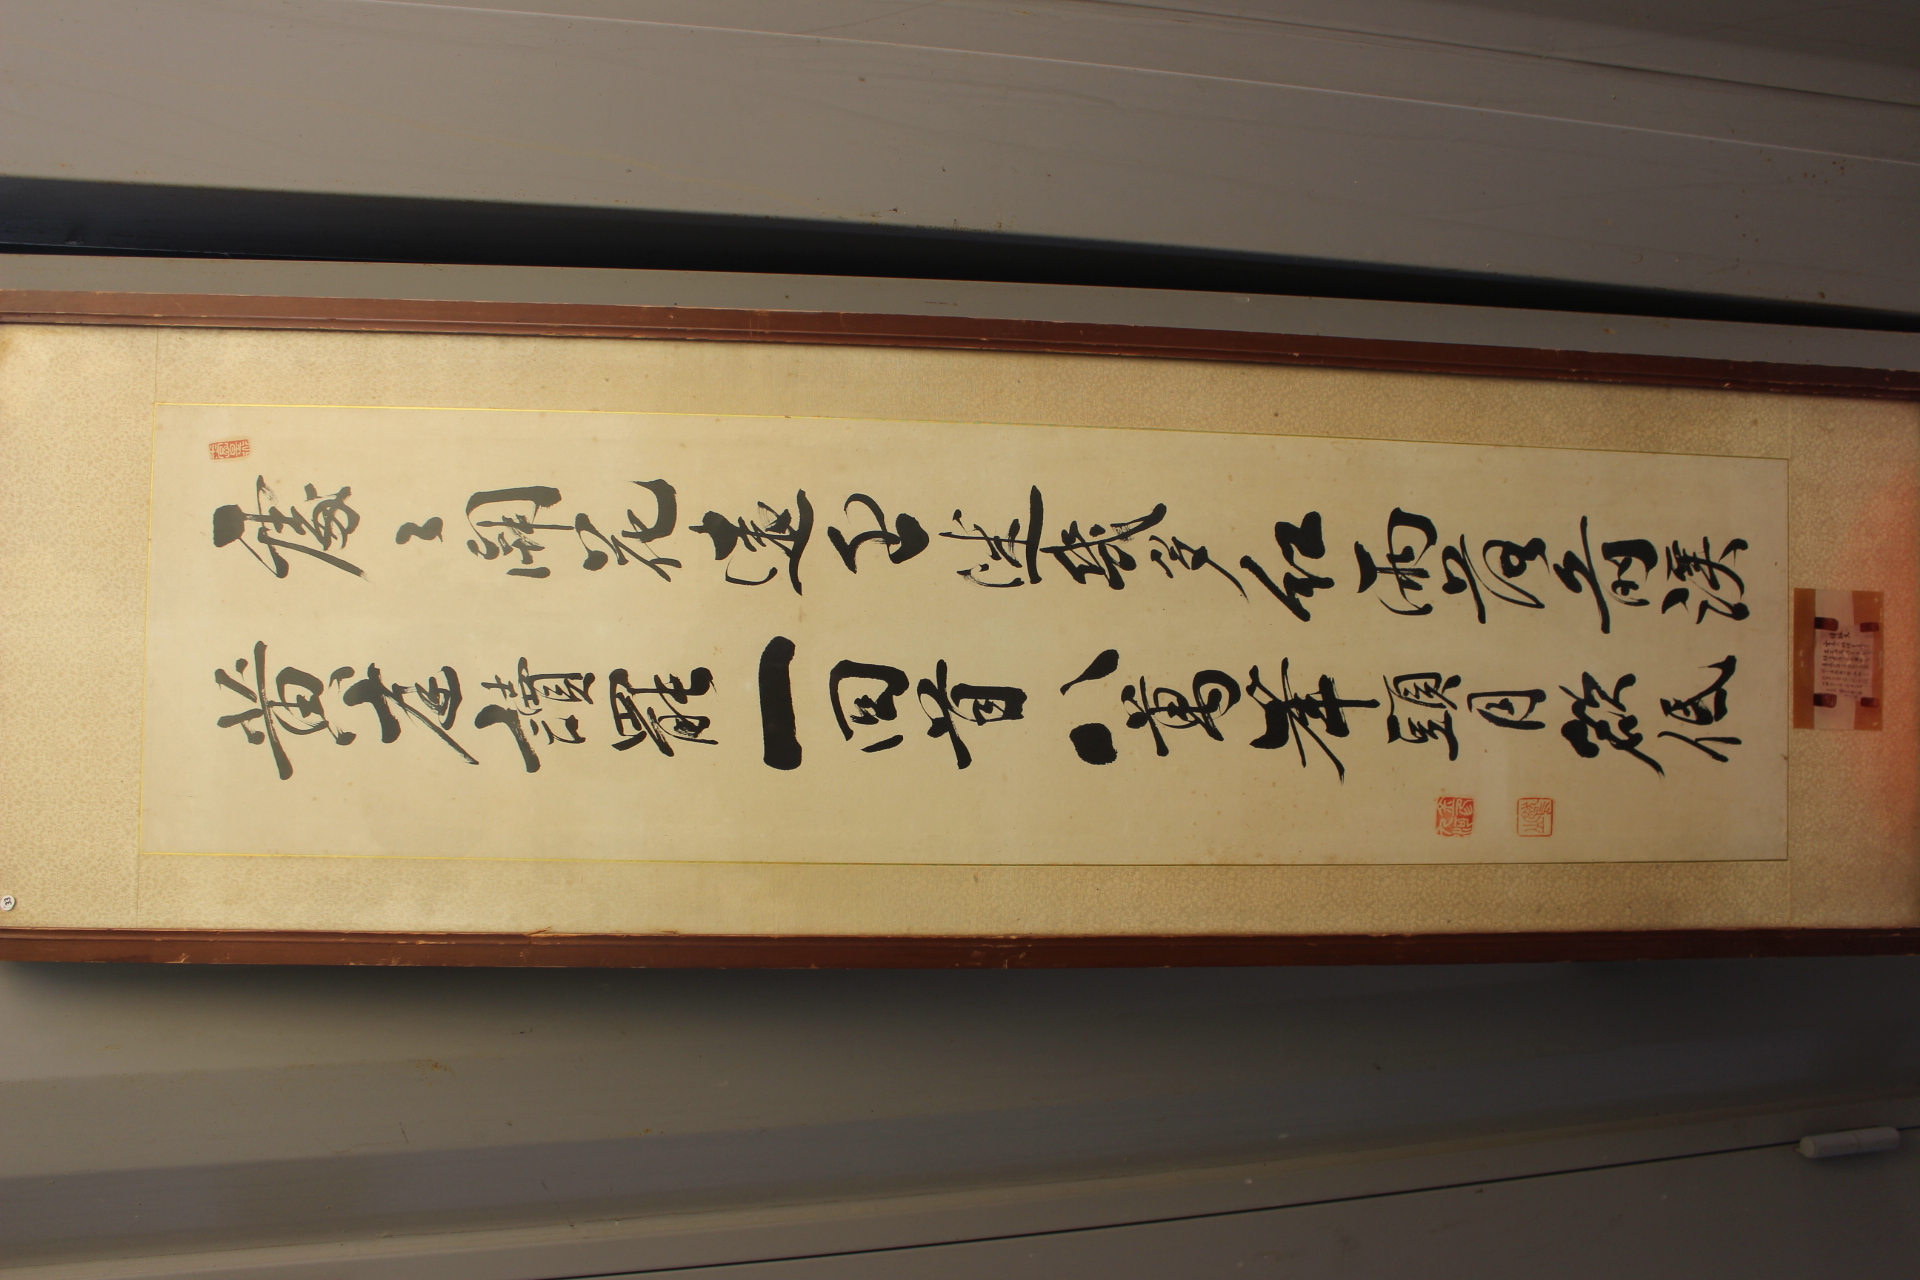 處〻開花遠近迷幾多紅雨落前溪
黃庭讀罷一回首八萬峯頭月欲低
33